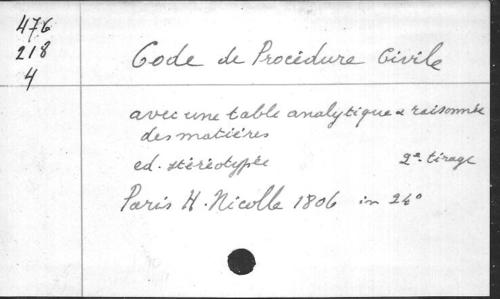 476
218
4
Code de Procédure Civile
avec une table analytique & raisonnée
des matières
ed. stéréotypée 2e tirage
Paris H. Nicolle 1806 in 24°